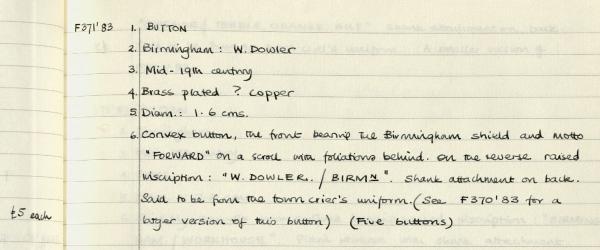 F371'83 1. BUTTON
2. Birmingham: W. Dowler
3. Mid-19th century
4. Brass plated ? copper
5. Diam.: 1.6 cms.
6. Convex button, the front bearing the Birmingham shield and motto
"FORWARD" on a scroll with foliations behind. On the reverse raised
inscription: "W. DOWLER. / BIRMM". Shank attachment on back.
Said to be from the town crier's uniform. (See F370'83 for a
£5 each larger version of this button) (Five buttons)